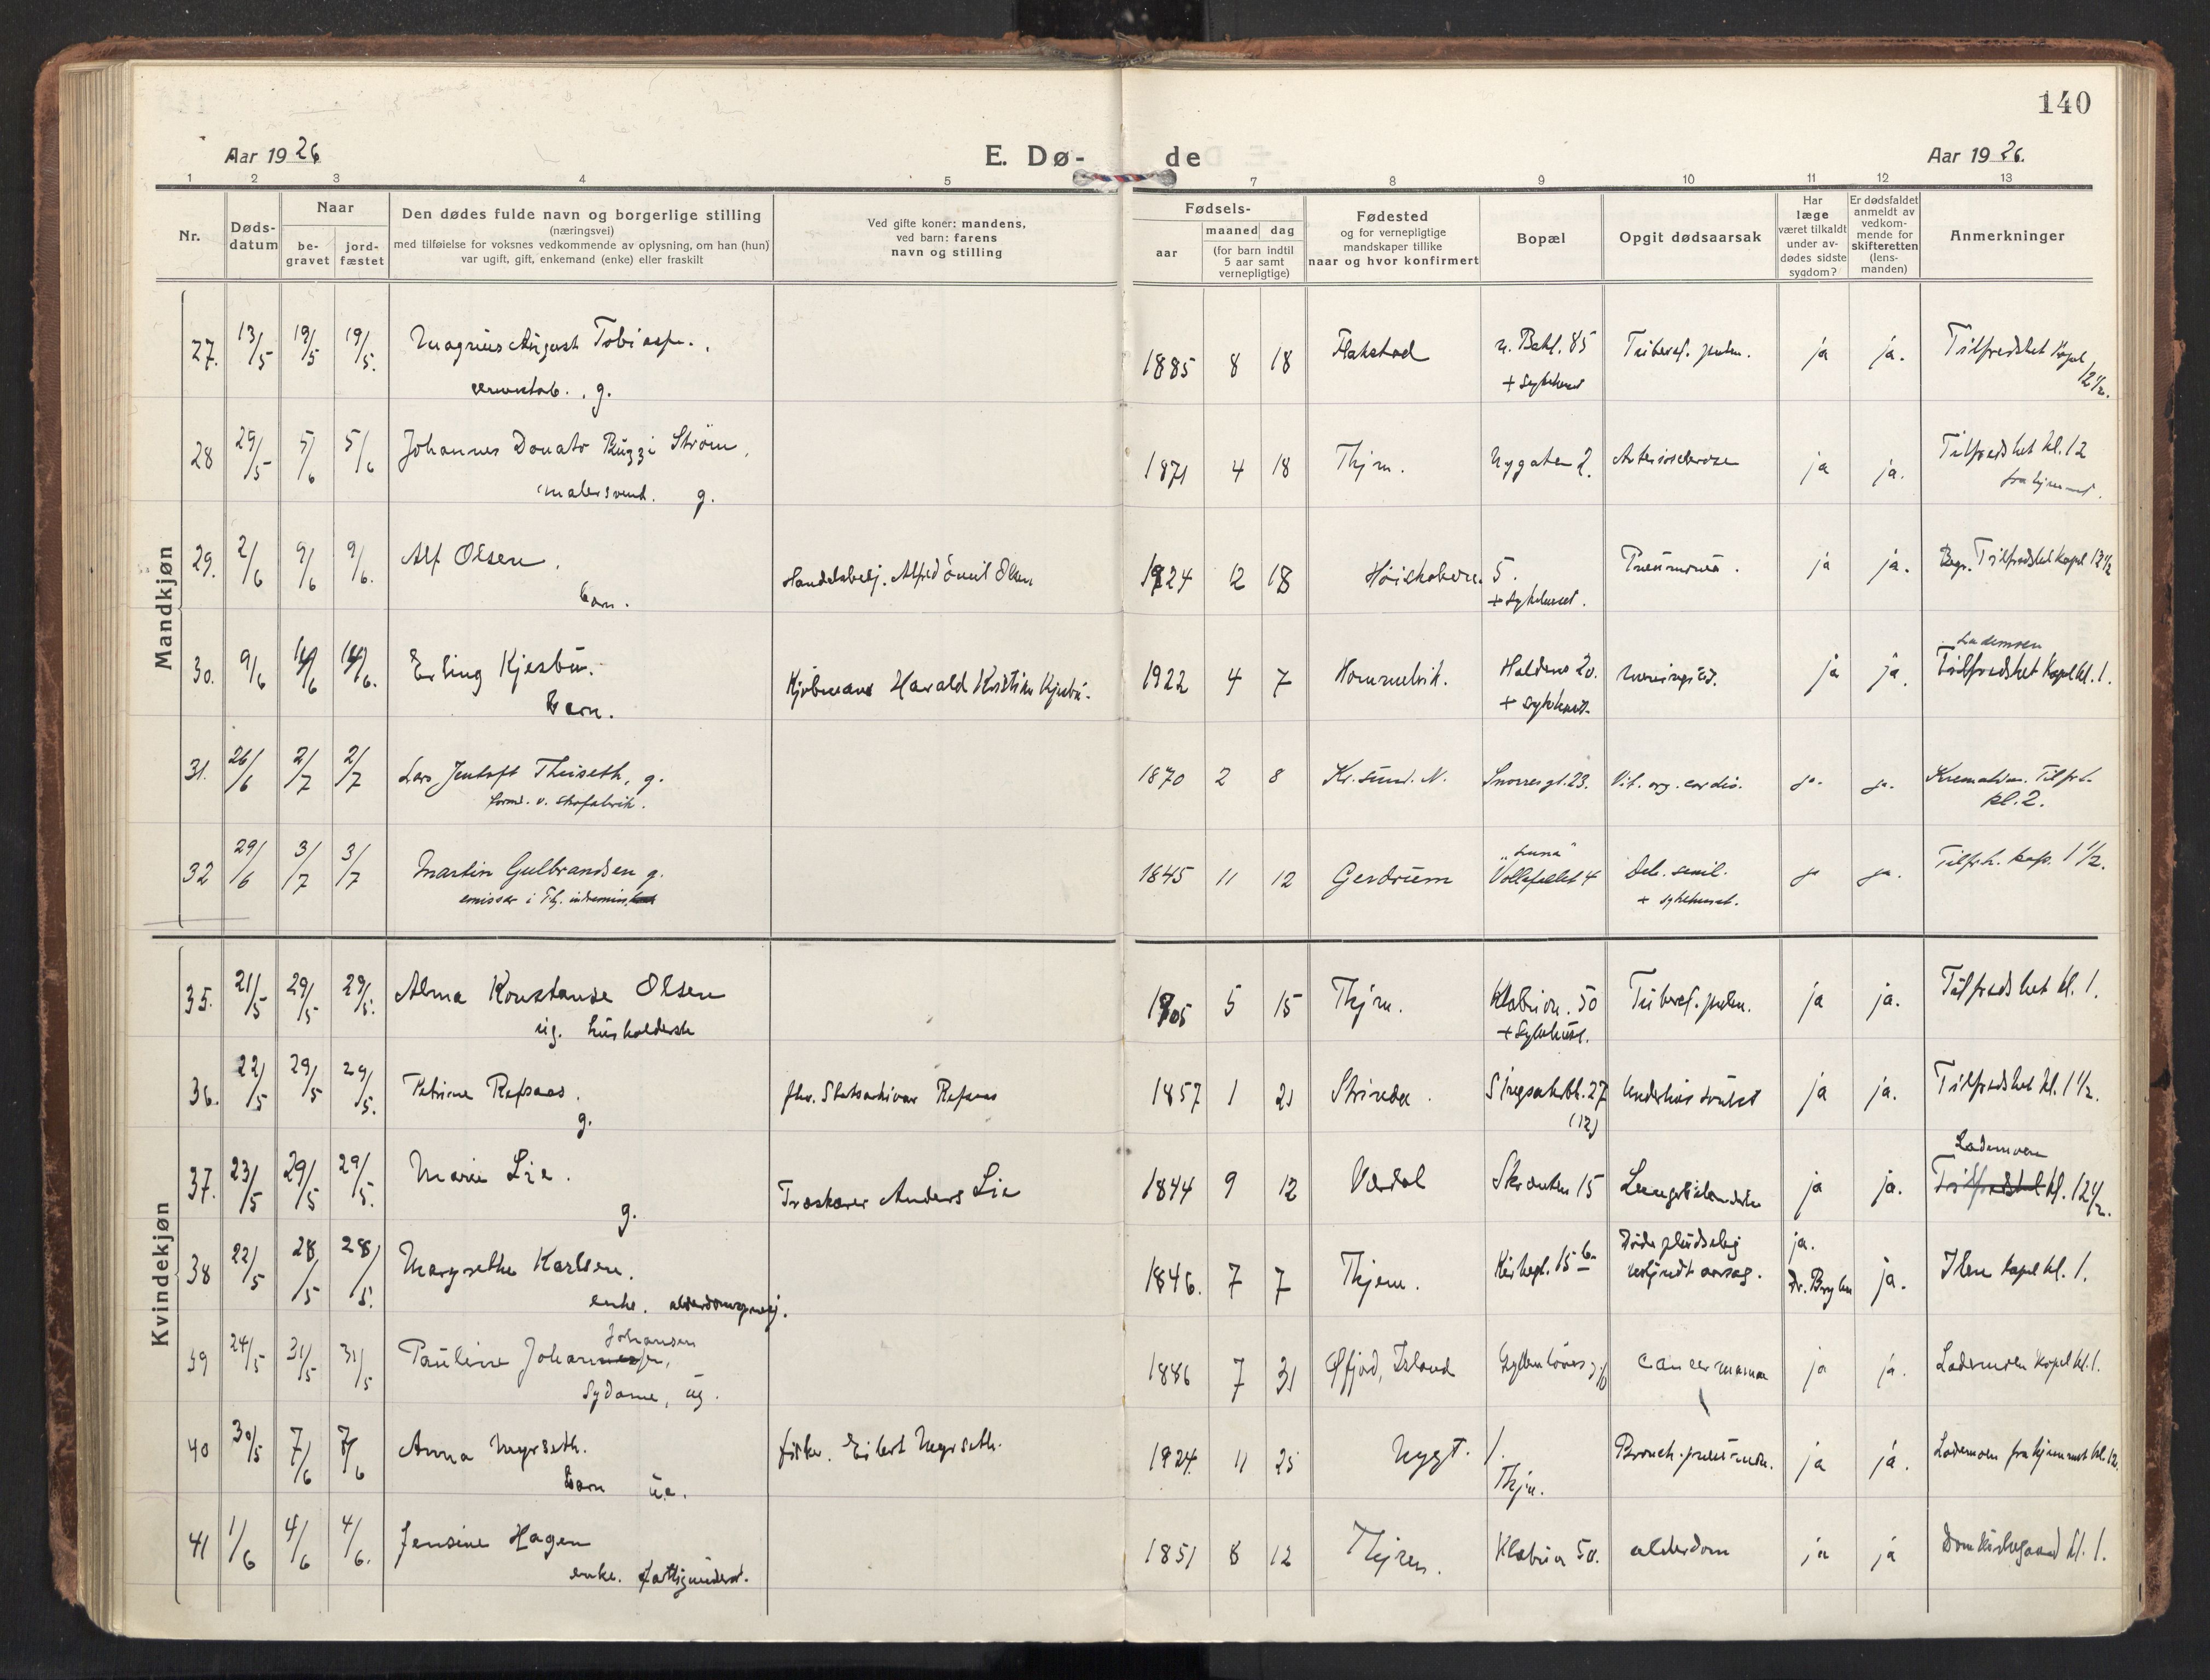 140
Aar 1926
E. Dø-
de
Aar 1926.
1 2 3 4 5 7 8 9 10 11 12 13
Nr.
Døds-
datum
Naar
be-
gravet
jord-
fæstet
Den dødes fulde navn og borgerlige stilling
(næringsvei)
med tilføielse for voksnes vedkommende av oplysning, om han (hun)
var ugift, gift, enkemand (enke) eller fraskilt
Ved gifte koner: mandens,
ved barn: farens
navn og stilling
Fødsels-
aar
maaned dag
(for barn indtil
5 aar samt
vernepligtige)
Fødested
og for vernepligtige
mandskaper tillike
naar og hvor konfirmert
Bopæl
Opgit dødsaarsak
Har
læge
været tilkaldt
under av-
dødes sidste
sygdom?
Er dødsfaldet
anmeldt av
vedkom-
mende for
skifteretten
(lens-
manden)
Anmerkninger
Mandkjøn
27. 13/5 19/5 19/5. Magnus August Tobias 1885 8 18 Flakstad 85 Tubercl. pulm. ja ja. Tilfredshet Kapel 12 1/2.
g. + Sykehuset
28 29/5 5/6 5/6 Johannes Donato Buggi Strøm, 1871 4 18 Thjm. Nygaten 2. Arteriosclerose ja ja. Tilfredshet kl. 12
malersvend. g. fra hjemmet.
29. 2/6 9/6 9/6. Alf Olsen, Alfred Emil Olsen 1924 12 18 5. Pneumoni. ja ja. Begr. Tilfredshet Kapel 12 1/2
barn. + Sykehuset.
Lademoen
30. 9/6 14/6 14/6. Erling Kjesbu. Kjøbmand Harald Kristian Kjesbu. 1922 4 7 Hommelvik. 20. ja ja. Tilfredshet Kapel kl. 1.
Barn. + Sykehuset.
31. 26/6 2/7 2/7 Lars Jentoft Thiseth, g. 1870 2 8 Kr.sund. N. Snorresgt. 23. Vit. org. cordis. ja. ja. Tilfr.h.
form. v. skofabrik. kl. 2.
"Luna"
32 29/6 3/7 3/7 Martin Gulbrandsen g. 1845 11 12 Gerdrum Vollafallet 4 Deb. senil. ja ja. Tilfr.h. kap. 1 1/2.
emissær i Thj. indremis. + sykehuset.
Kvindekjøn
35. 21/5 29/5 29/5. Alma Konstanse Olsen 1905 5 15 Thjm. 50 Tubercl. pulm. ja ja. Tilfredshet kl. 1.
ug. husholderske + Sykehuset.
36. 22/5 29/5 29/5. Petrine Refsaas. fhv. Statsarkivar Refsaas 1857 1 21 Strinda. 27 ja ja. Tilfredshet kl. 1 1/2.
g. (12)
Lademoen
37. 23/5 29/5 29/5. Marie Lie. Anders Lie 1844 9 12 Værdal Skrænten 15 ja ja. Tilfredshet kl. 12 1/2.
g.
38 22/5 28/5 28/5. Margrethe Karlsen. 1846. 7 7 Thjem. Kirkegt. 15 b. Døde pludselig ja. ja. Ilen Kapel kl. 1.
enke. aarsag.
Johansen
39 24/5 31/5 31/5 Pauline 1886 7 31 Øfjord, Island cancer mamma ja ja. Lademoen Kapel kl. 1.
Sydame, ug.
40 30/5 7/6 7/6 Anna Myrseth. Eilert Myrseth. 1924. 11 25 Nygt. 1. Bronch. pneumoni. ja ja. Lademoen fra hjemmet kl. 12.
Barn u.e. Thjm.
41 1/6 4/6 4/6. Jensine Hagen 1851 8 12 Thjem. 50. alderdom ja ja Domkirkegaard kl. 1.
enke. fattigunderst.